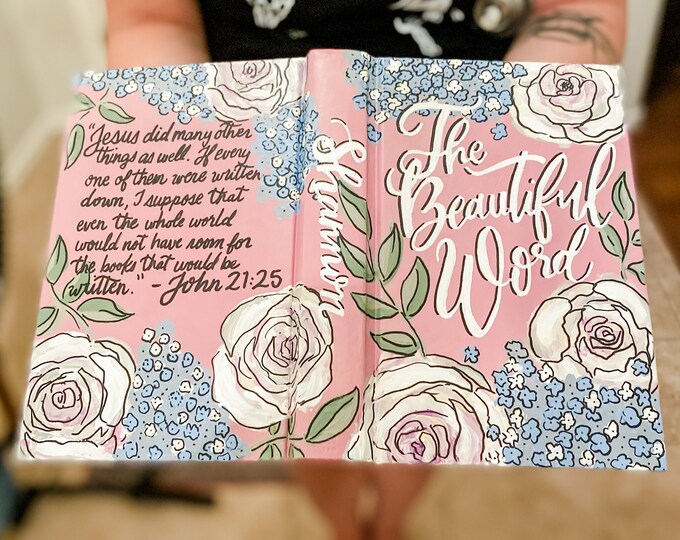 "Jesus did many other
things as well. If every
one of them were written
down, I suppose that
even the whole world
would not have room for
the books that would be
written." - John 21:25
Shannon
The
Beautiful
Word